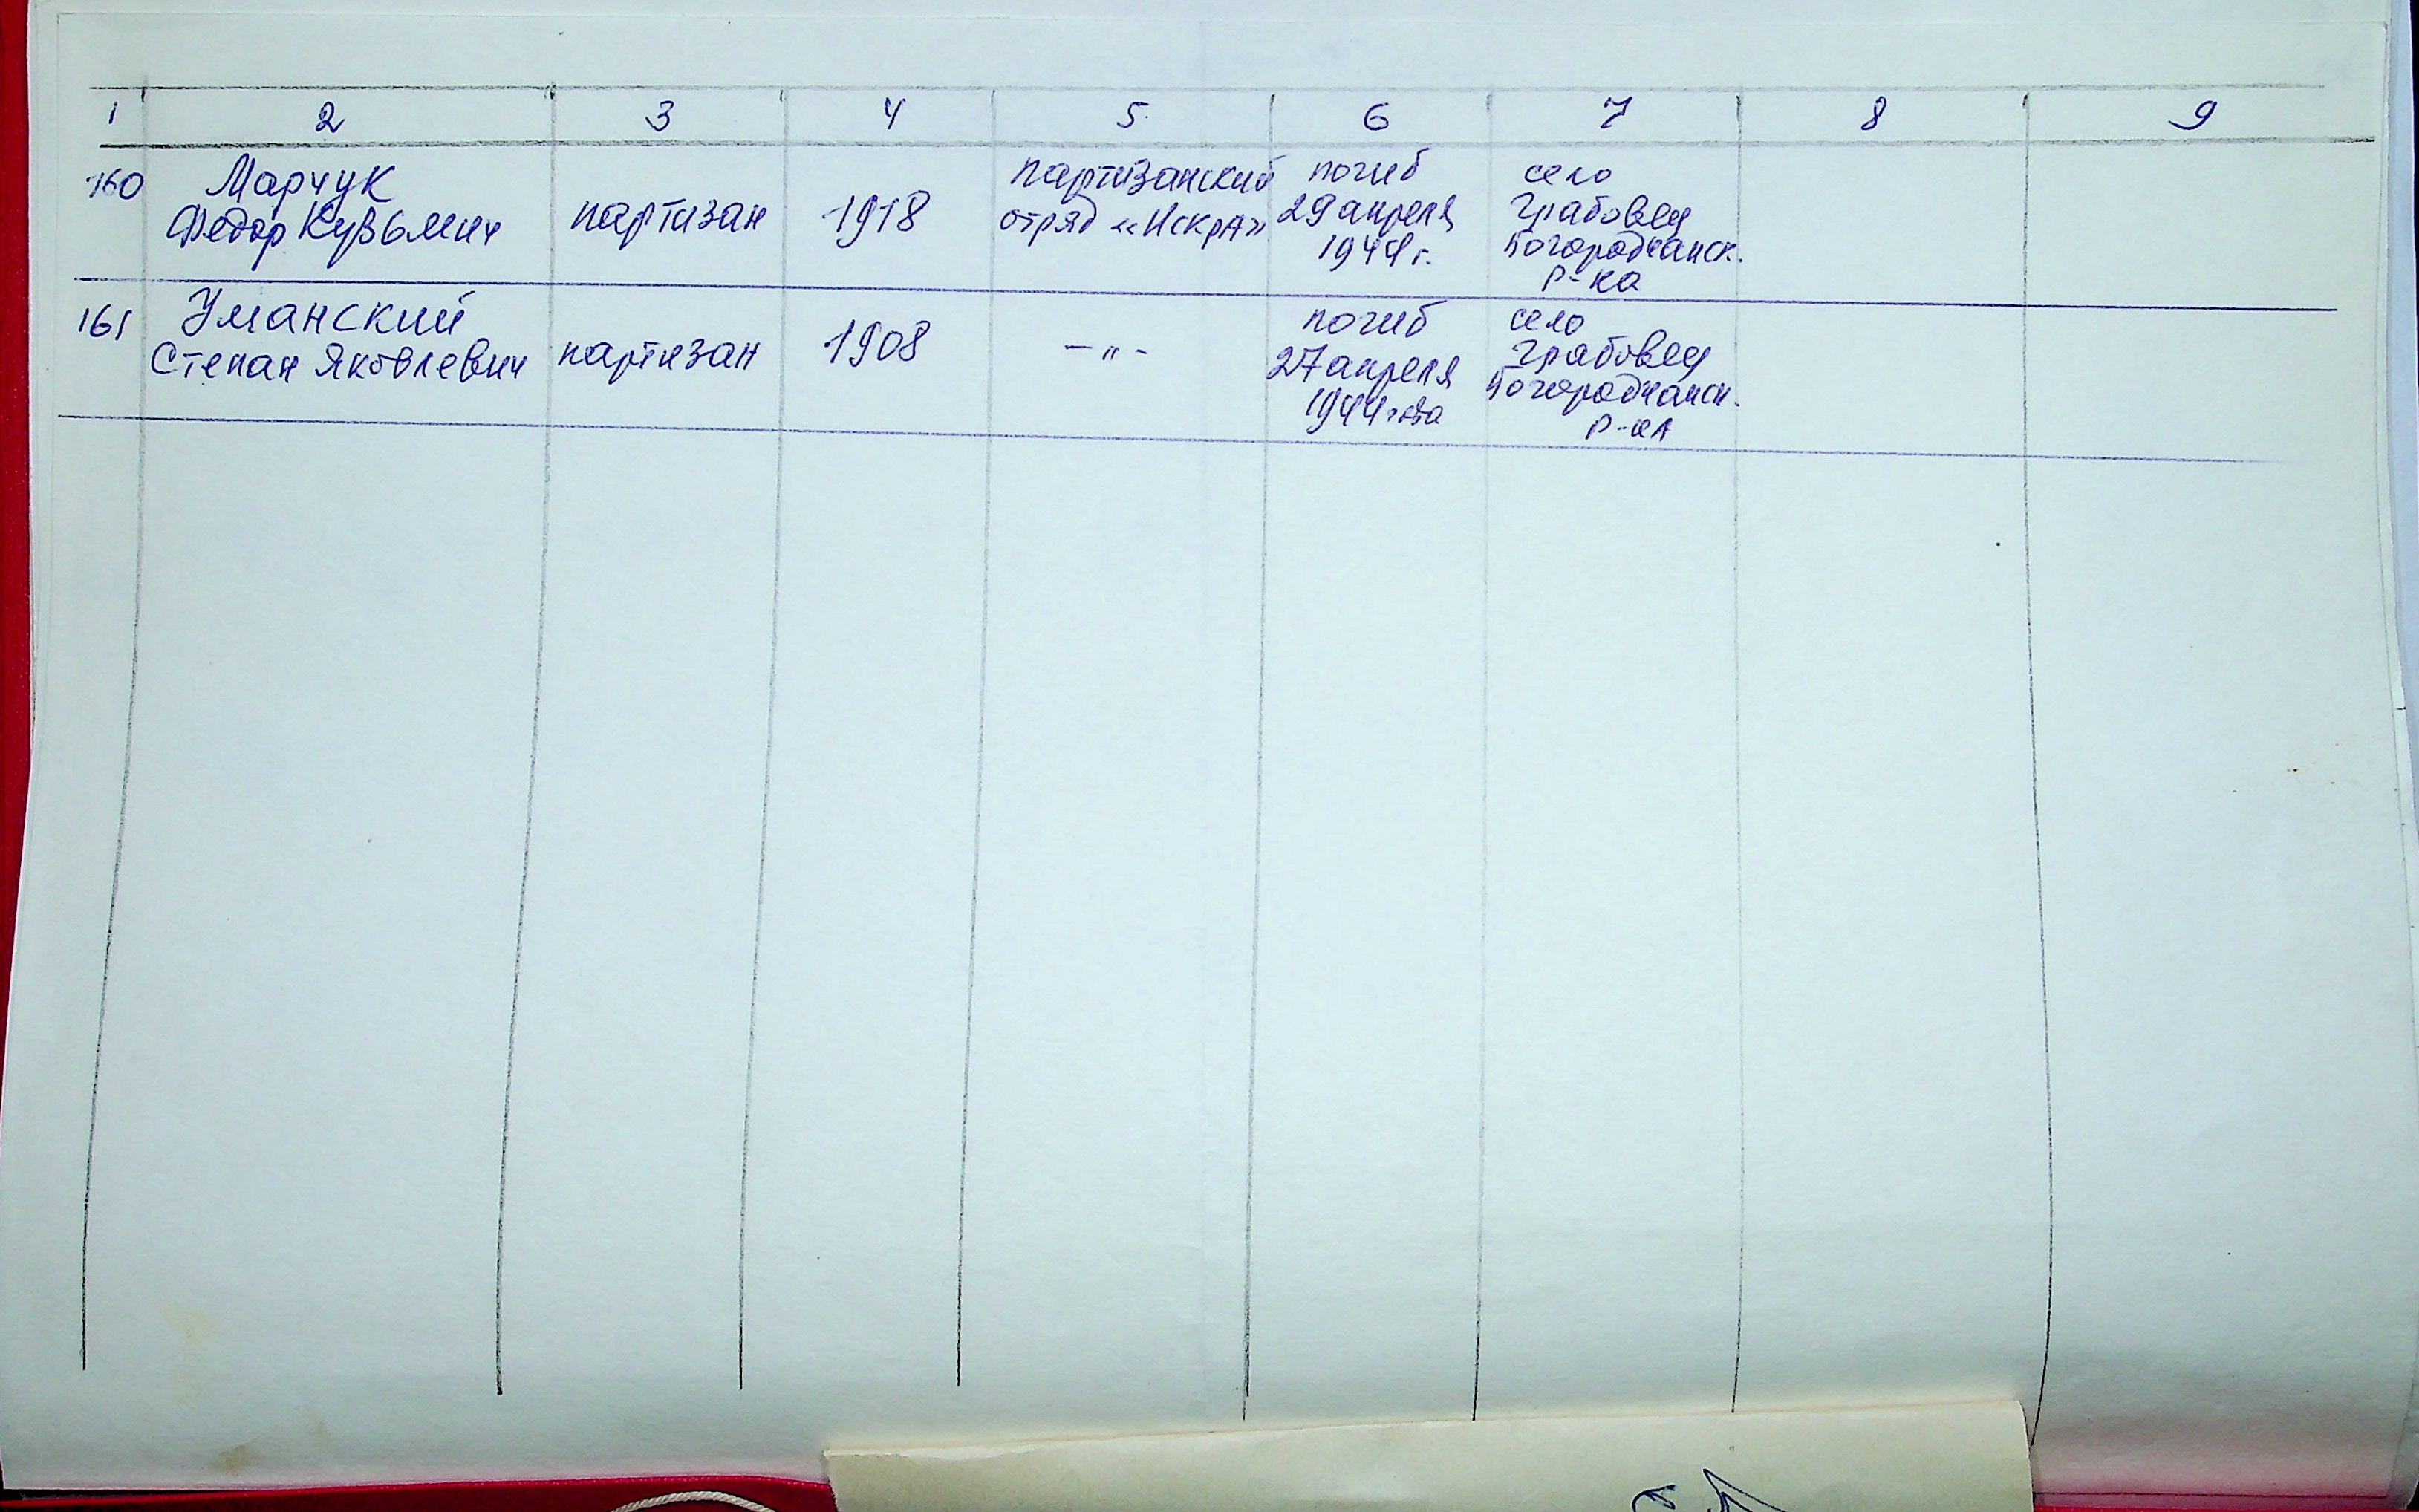 1 2 3 4 5 6 7 8 9
160
Марчук
Федор Кузьмич
партизан
1918
партизанский
отряд «Искра»
погиб
29 апреля
1944 г.
село
Грабовец
Богородчанск.
р-на
161
Уманский
Степан Яковлевич
партизан
1908
-〃-
погиб
27 апреля
1944 года
село
Грабовец
Богородчанск.
р-на